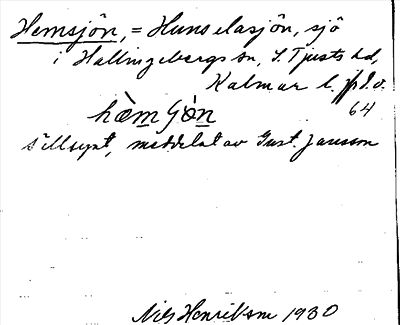 Hemsjön, = Hunselasjön, sjö
i Hallingebergs sn, S. Tjusts hd,
Kalmar l.
64
hæ̀mʃø̀n
sällsynt, meddelat av Gust. Jansson
Nils Henriksson 1930